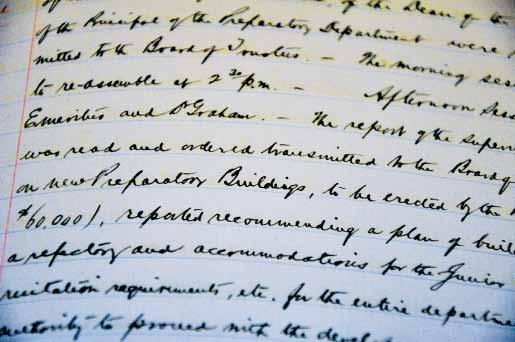 of the Dean of the
of the Principal of the Preparatory Department were
mitted to the Board of Trustees. – The morning sess
to re-assemble at 2 30 p.m. – Afternoon Sess
Emeritus and Dr Graham. – The report of the superv
was read and ordered transmitted to the Board of
on new Preparatory Buildings, to be erected by the
$60,000), reported recommending a plan of buil
a refectory and accommodations for the Junior
recitation requirements, etc. for the entire departme
authority to proceed with the develop